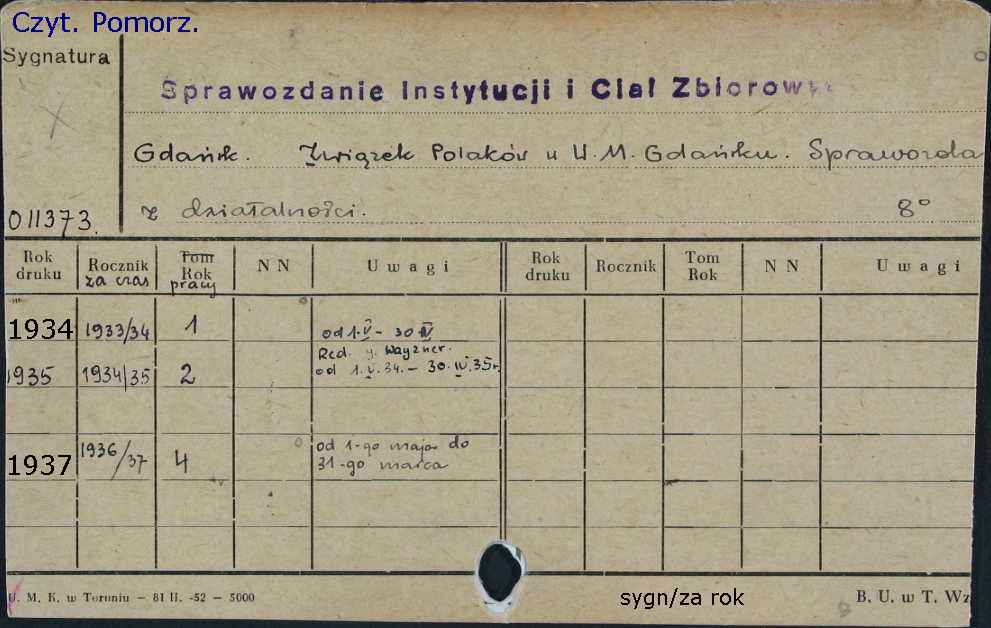 Czyt. Pomorz.
Sygnatura
Sprawozdanie Instytucji i Ciał Zbiorowy
Gdańsk. Związek Polaków w W. M. Gdańsku. Sprawozda
z działalności. 8°
011373.
Rok druku Rocznik za czas Tom Rok pracy N N Uwagi Rok druku Rocznik Tom Rok N N Uwagi
1934 1933/34 1 od 1.V – 30 IV
Red. J. Wayzner.
1935 1934/35 2 od 1.V.34. – 30.IV.35r.
1937 1936/37 4 od 1-go maja do
31-go marca
U. M. K. w Toruniu – 81 II. -52 – 5000 sygn/za rok B. U. w T. Wz